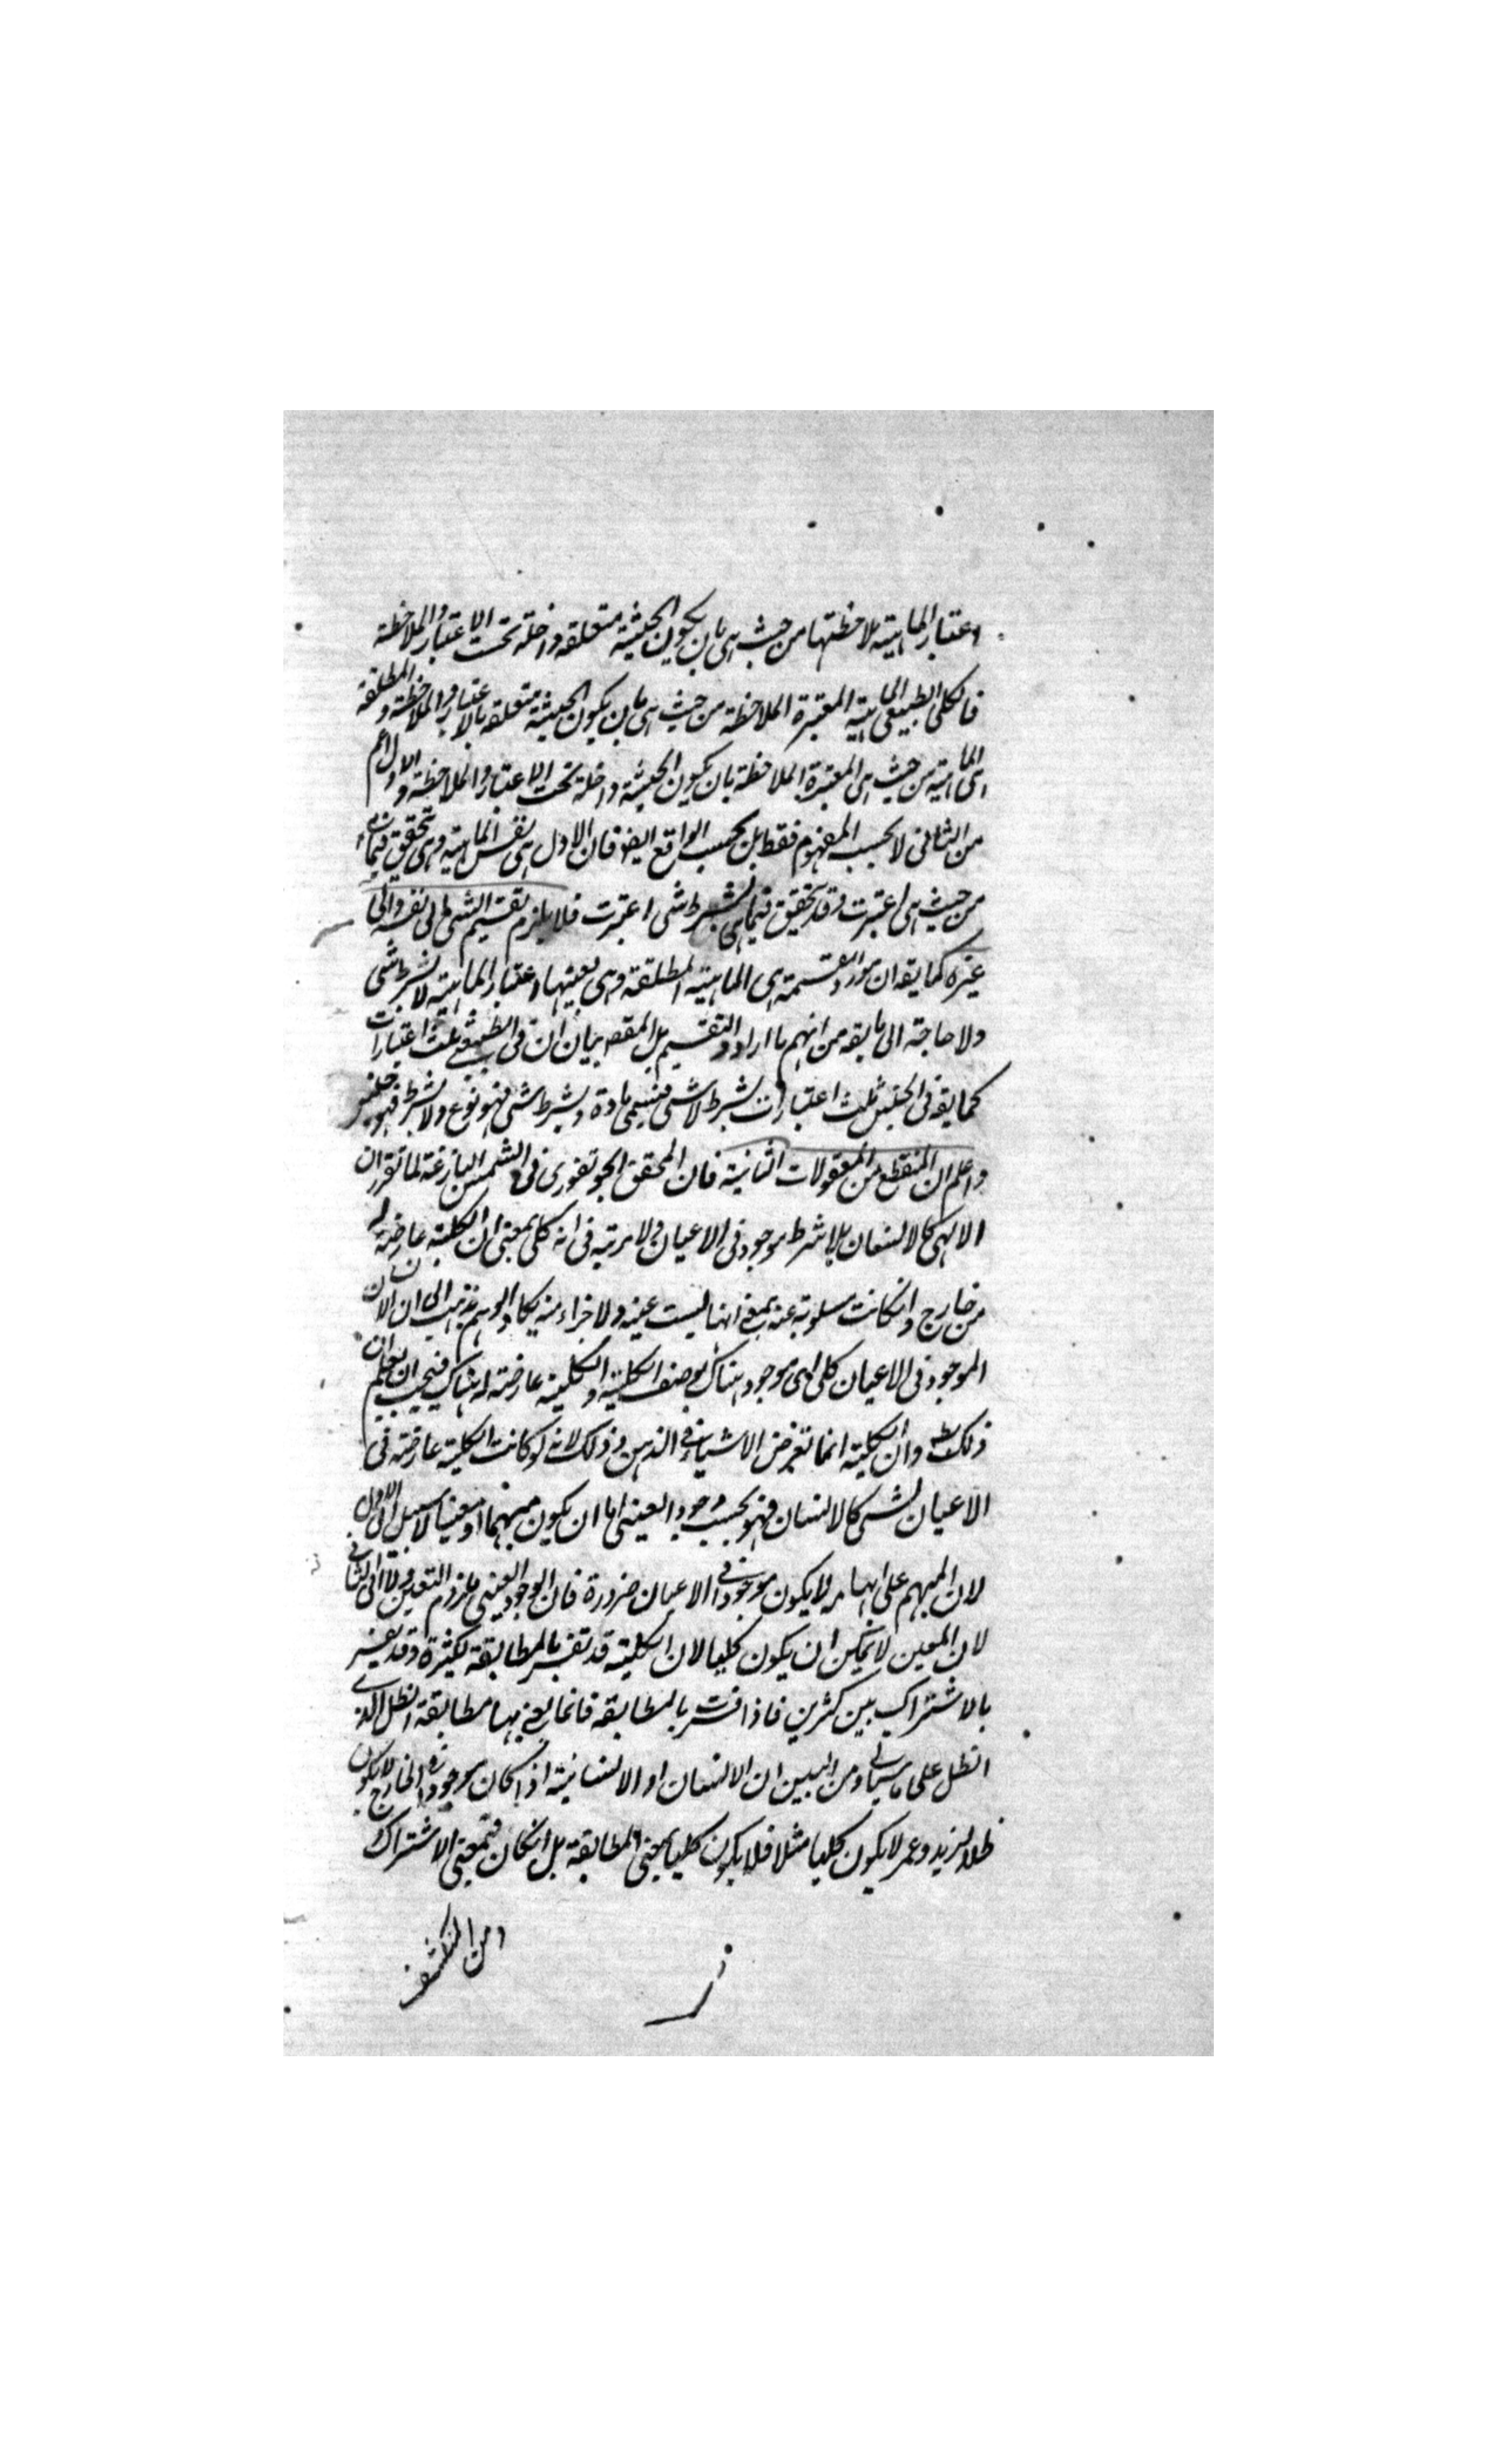 اعتبار الماهية ملاحظتها من حيث هى بان يكون الحيثية متعلقه داخلة تحت الاعتبار والملاحظة
فالكلى الطبيعى الماهية المعتبرة الملاحظة من حيث هى بان يكون الحيثية متعلقه بالاعتبار والملاحظة والمطلقة
هى الماهية من حيث هى المعتبرة الملاحظة بان يكون الحيثية داخلة تحت الاعتبار والملاحظة والاول اعم
من الثانى لا بحسب المفهوم فقط بل بحسب الواقع ايضا فان الاول هى نفس الماهية وهى تتحقق فيما
من حيث هى اعتبرت وقد تحقق فيما هى بشرط شى اعتبرت فلا يلزم تقسيم الشى الى نفسه والى
غيره كما يقه ان مورد القسمة هى الماهية المطلقة وهى بعينها اعتبار الماهية لا بشرط شى
ولا حاجة الى ما يقه من انهم ما ارادوا التقسيم بل المقصه بيان ان فى الطبيعة ثلث اعتبارات
كما يقه فى الجنس ثلث اعتبارات بشرط لا شى فيسمى مادة وبشرط شى فهو نوع ولا بشرط فهو جنس
واعلم ان المنقطع من المعقولات الثانية فان المحقق الجونفورى فى الشمس البازغة لما تقرر ان
الالهى كالانسان بلا شرط موجود فى الاعيان ولا مرتبه فى انه كلى بمعنى ان الكلية عارضة له
من خارج وانكانت مسلوبة عنه بمعنى انها ليست عينه ولا جزاء منه يكاد الوهم يذهب الى ان الانسان
الموجود فى الاعيان كلى اى موجود هناك بوصف الكلية والكلية عارضة له هناك فيجب ان يعلم ان
ذلك بط وان الكلية انما تعرض الاشياء فى الذهن وذلك لانه لو كانت الكلية عارضة فى
الاعيان لشى كالانسان فهو بحسب وجود العينى اما ان يكون مبهما او معينا لا سبيل الى الاول
لان المبهم على ابهامه لا يكون موجودا فى الاعيان ضرورة فان الوجود العينى ملزوم التعين ولا الى الثانى
لان المعين لا يمكن ان يكون كليا لان الكلية قد تفسر بالمطابقة لكثيرة وقد يفسر
بالاشتراك بين كثيرين فاذا فسرت بالمطابقه فانما يعنى بها مطابقة الظل الذى
الظل على ما سياتى ومن البين ان الانسان او الانسانية اذا كان موجودا فى الخارج لا يكون
ظلا لزيد وعمر لا يكون كليا مثلا فلا يكون كليا بمعنى المطابقة بل انكان فبمعنى الاشتراك
ومن المنكشف